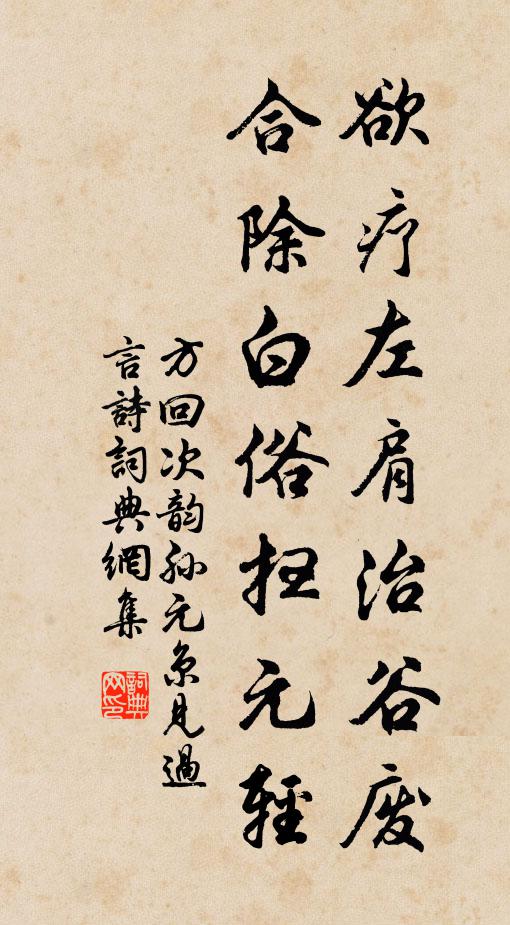 欲疗左肩治谷废
合除白俗扫元轻
方回次韵孙元京见過
言詩詞典網集
詞典
网印